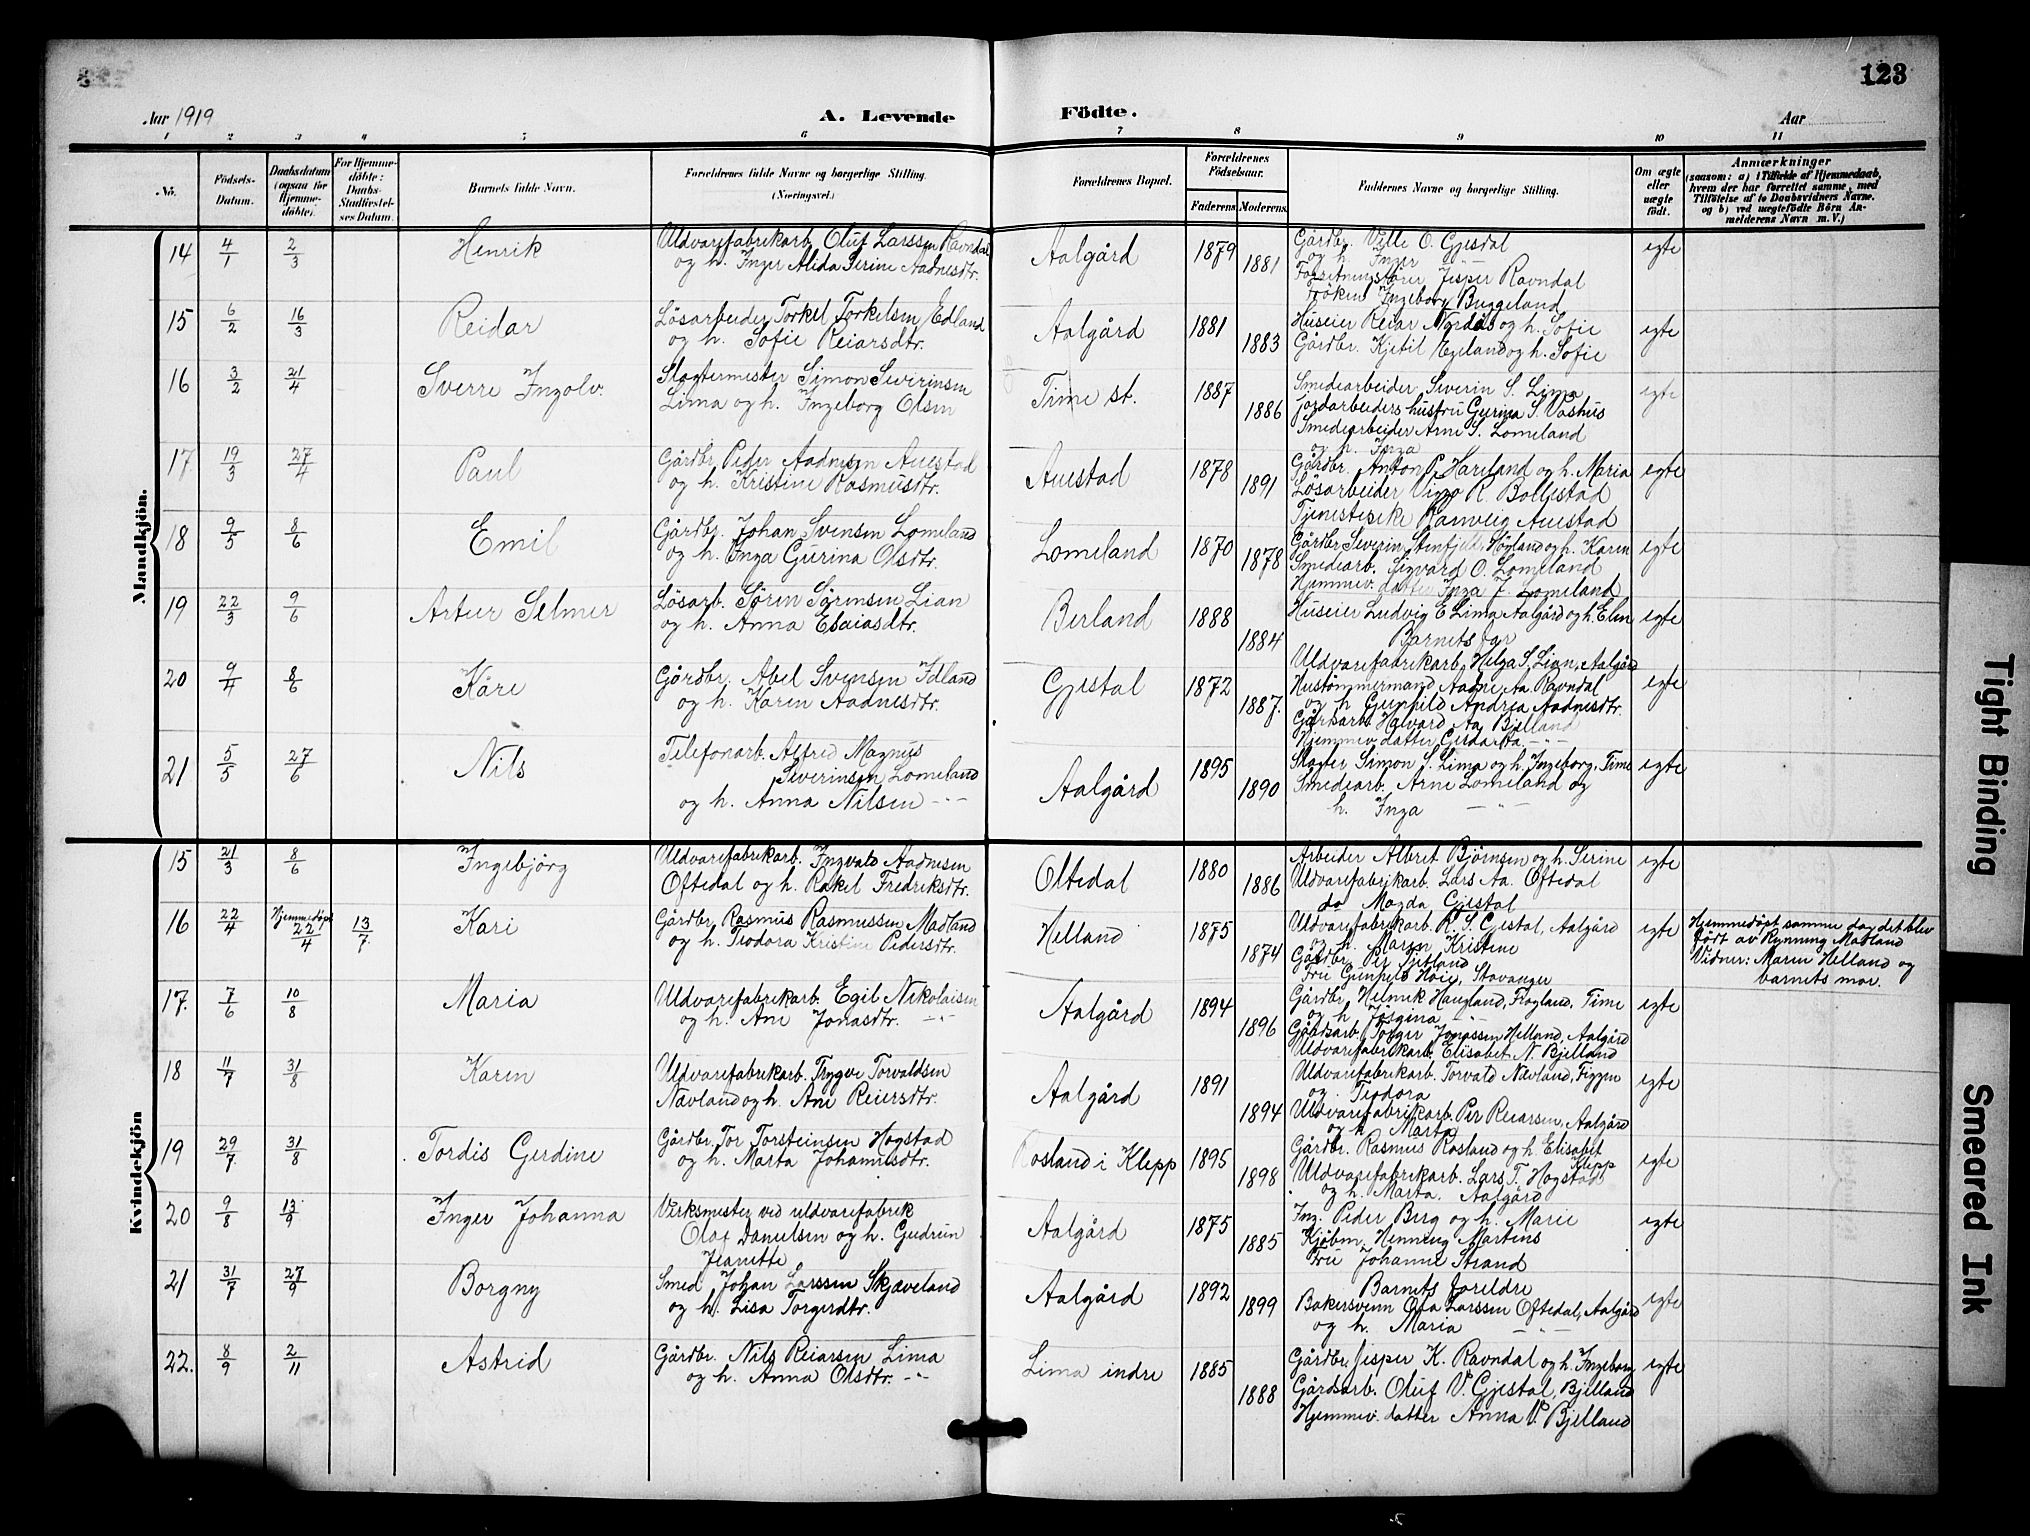 123
Aar 1919
A. Levende Födte.
Aar
1 2 3 4 5 6 7 8 9 10 11
No. Födsels-Datum. Daabsdatum (ogsaa for Hjemme-döbte). For Hjemme-döbte: Daabs-Stadfæstel-ses Datum. Barnets fulde Navn. Forældrenes fulde Navne og borgerlige Stilling. (Næringsvei.) Forældrenes Bopæl. Forældrenes Födselsaar. Faderens. Moderens. Faddernes Navne og borgerlige Stilling. Om ægte eller uægte födt. Anmærkninger (saasom: a) i Tilfælde af Hjemmedaab, hvem der har forrettet samme, med Tilföielse af to Daabsvidners Navne, og b) ved uægtefödte Börn An-melderens Navn m. V.)
Mandkjön.
14 4/1 2/3 Henrik Uldvarefabrikarb. Oluf Larssen Ravndal Aalgård 1879 Gårdbr. Ville O. Gjesdal egte
og h. Inger Alida Serine Aadnesdtr. 1881 og h. Inger
Jesper Ravndal
Frøken Ingeborg Byggeland
15 6/2 16/3 Reidar Løsarbeider Torkel Torkelsen Edland Aalgård 1881 Huseier Reiar og h. Sofie egte
og h. Sofie Reiarsdtr. 1883 Gårdbr. Kjetil Egeland og h. Sofie
16 3/2 21/4 Sverre Ingolv. Slagtermester Simon Severinsen Time st. 1887 Smedearbeider Severin S. Lima egte
Lima og h. Ingeborg Olsen 1886 jordarbeiders hustru Gurina S. Vashus
Smedearbeider Arne S. Lomeland
og h. Inga
17 19/3 27/4 Paul Gårdbr. Peder Aadnesen Auestad Auestad 1878 Gårdbr. Anton P. Hareland og h. Maria egte
og h. Kristine Rasmusdtr. 1891 Løsarbeider Viggo R. Bollestad
Tjenestepike Ranveig Auestad
18 9/5 8/6 Emil Gårdbr. Johan Svensen Lomeland Lomeland 1870 Gårdbr. Severin Høyland og h. Karen egte
og h. Inga Gurina Olsdtr. 1878 Smedearb. Sigvard O. Lomeland
Hjemmev. datter Inga J. Lomeland
19 22/3 9/6 Artur Selmer Løsarb. Søren Sørensen Lian Berland 1888 Huseier Ludvig E Lima Aalgård og h. Elen egte
og h. Anna Esaiasdtr. 1884 Barnets far
Uldvarefabrikarb. Helga S. Lian, Aalgård
20 9/4 8/6 Kåre Gårdbr. Abel Svensen Idland Gjestal 1872 Hustømmermand Aadne Aa. Ravndal egte
og h. Karen Aadnesdtr. 1887. og h Gunhild Andrea Aadnesdtr.
Halvard Aa. Bjelland
Hjemmev. datter
21 5/5 27/6 Nils Telefonarb. Alfred Magnus Aalgård 1895 Slagter Simon S. Lima og h. Ingeborg, Time egte
Severinsen Lomeland 1890 Smedearb. Arne Lomeland og
og h. Anna Nilsen -"- h. Inga -"-
Kvindekjön
15 21/3 8/6 Ingebjørg Uldvarefabrikarb. Ingvald Aadnesen Oltedal 1880 Arbeider Albret Bjørnsen og h. Serine egte
Oftedal og h. Rakel Fredriksdtr. 1886 Uldvarefabrikarb. Lars Aa. Oftedal
do Magda Gjestal
16 22/4 Hjemmedøpt 22/4 13/7 Kari Gårdbr Rasmus Rasmussen Madland Helland 1875 Uldvarefabrikarb. R. S. Gjestal, Aalgård egte Hjemmedøpt samme dag det blev
og h. Teodora Kristine Pedersdtr. 1874 og h. Maren Kristine født av Rynning Madland
Gårdbr. Per Vidner: Maren Helland og
Fru Gunhild Høie, Stavanger barnets mor.
17. 7/6 10/8 Maria Uldvarefabrikarb. Egil Nikolaisen Aalgård 1894 Gårdbr. Helmik Haugland, Frøyland, Time egte
og h. Ane Jonasdtr. -"- 1896 og h. Josefina -"-
Gårdsarb. Torger Jonassen Helland, Aalgård
Uldvarefabrikarb. Elisabet N. Bjelland
18 11/7 31/8 Karen Uldvarefabrikarb. Trygve Torvaldsen Aalgård 1891 Uldvarefabrikarb. Torvald Nævland, Figgen egte
Nævland og h. Ane Reiersdtr. 1894 og Teodora
Uldvarefabrikarb. Per Reiarsen, Aalgård
og h. Marta
19 29/7 31/8 Tordis Gerdine Gårdbr. Tor Torsteinsen Hogstad Rosland i Klepp 1895 Gårdbr. Rasmus Rosland og h. Elisabet egte
og h. Marta Johannesdtr. 1898 Klepp
Uldvarefabrikarb. Lars T. Hogstad
og h. Marta, Aalgård
20 9/8 13/9 Inger Johanna Verksmester ved uldvarefabrik Aalgård 1875 Ing. Peder Berg og h. Marie egte
Olaf Danielsen og h. Gudrun 1885 Kjøbm. Henning Martens
Jeanette Fru Johanne Strand
21 31/7 27/9 Borgny Smed Johan Larssen Skjæveland Aalgård 1892 Barnets foreldre egte
og h. Lisa Torgersdtr. 1899 Bakersvenn Ola Larssen Oftedal, Aalgård
og h. Maria -"-
22. 8/9 2/11 Astrid Gårdbr. Nils Reiarsen Lima Lima indre 1885 Gårdbr. Jesper K. Ravndal og h. Ingeborg egte
og h. Anna Olsdtr. -"- 1888 Gårdsarb. Oluf V. Gjestal, Bjelland
Hjemmev. datter Anna V. Bjelland
Tight Binding
Smeared Ink